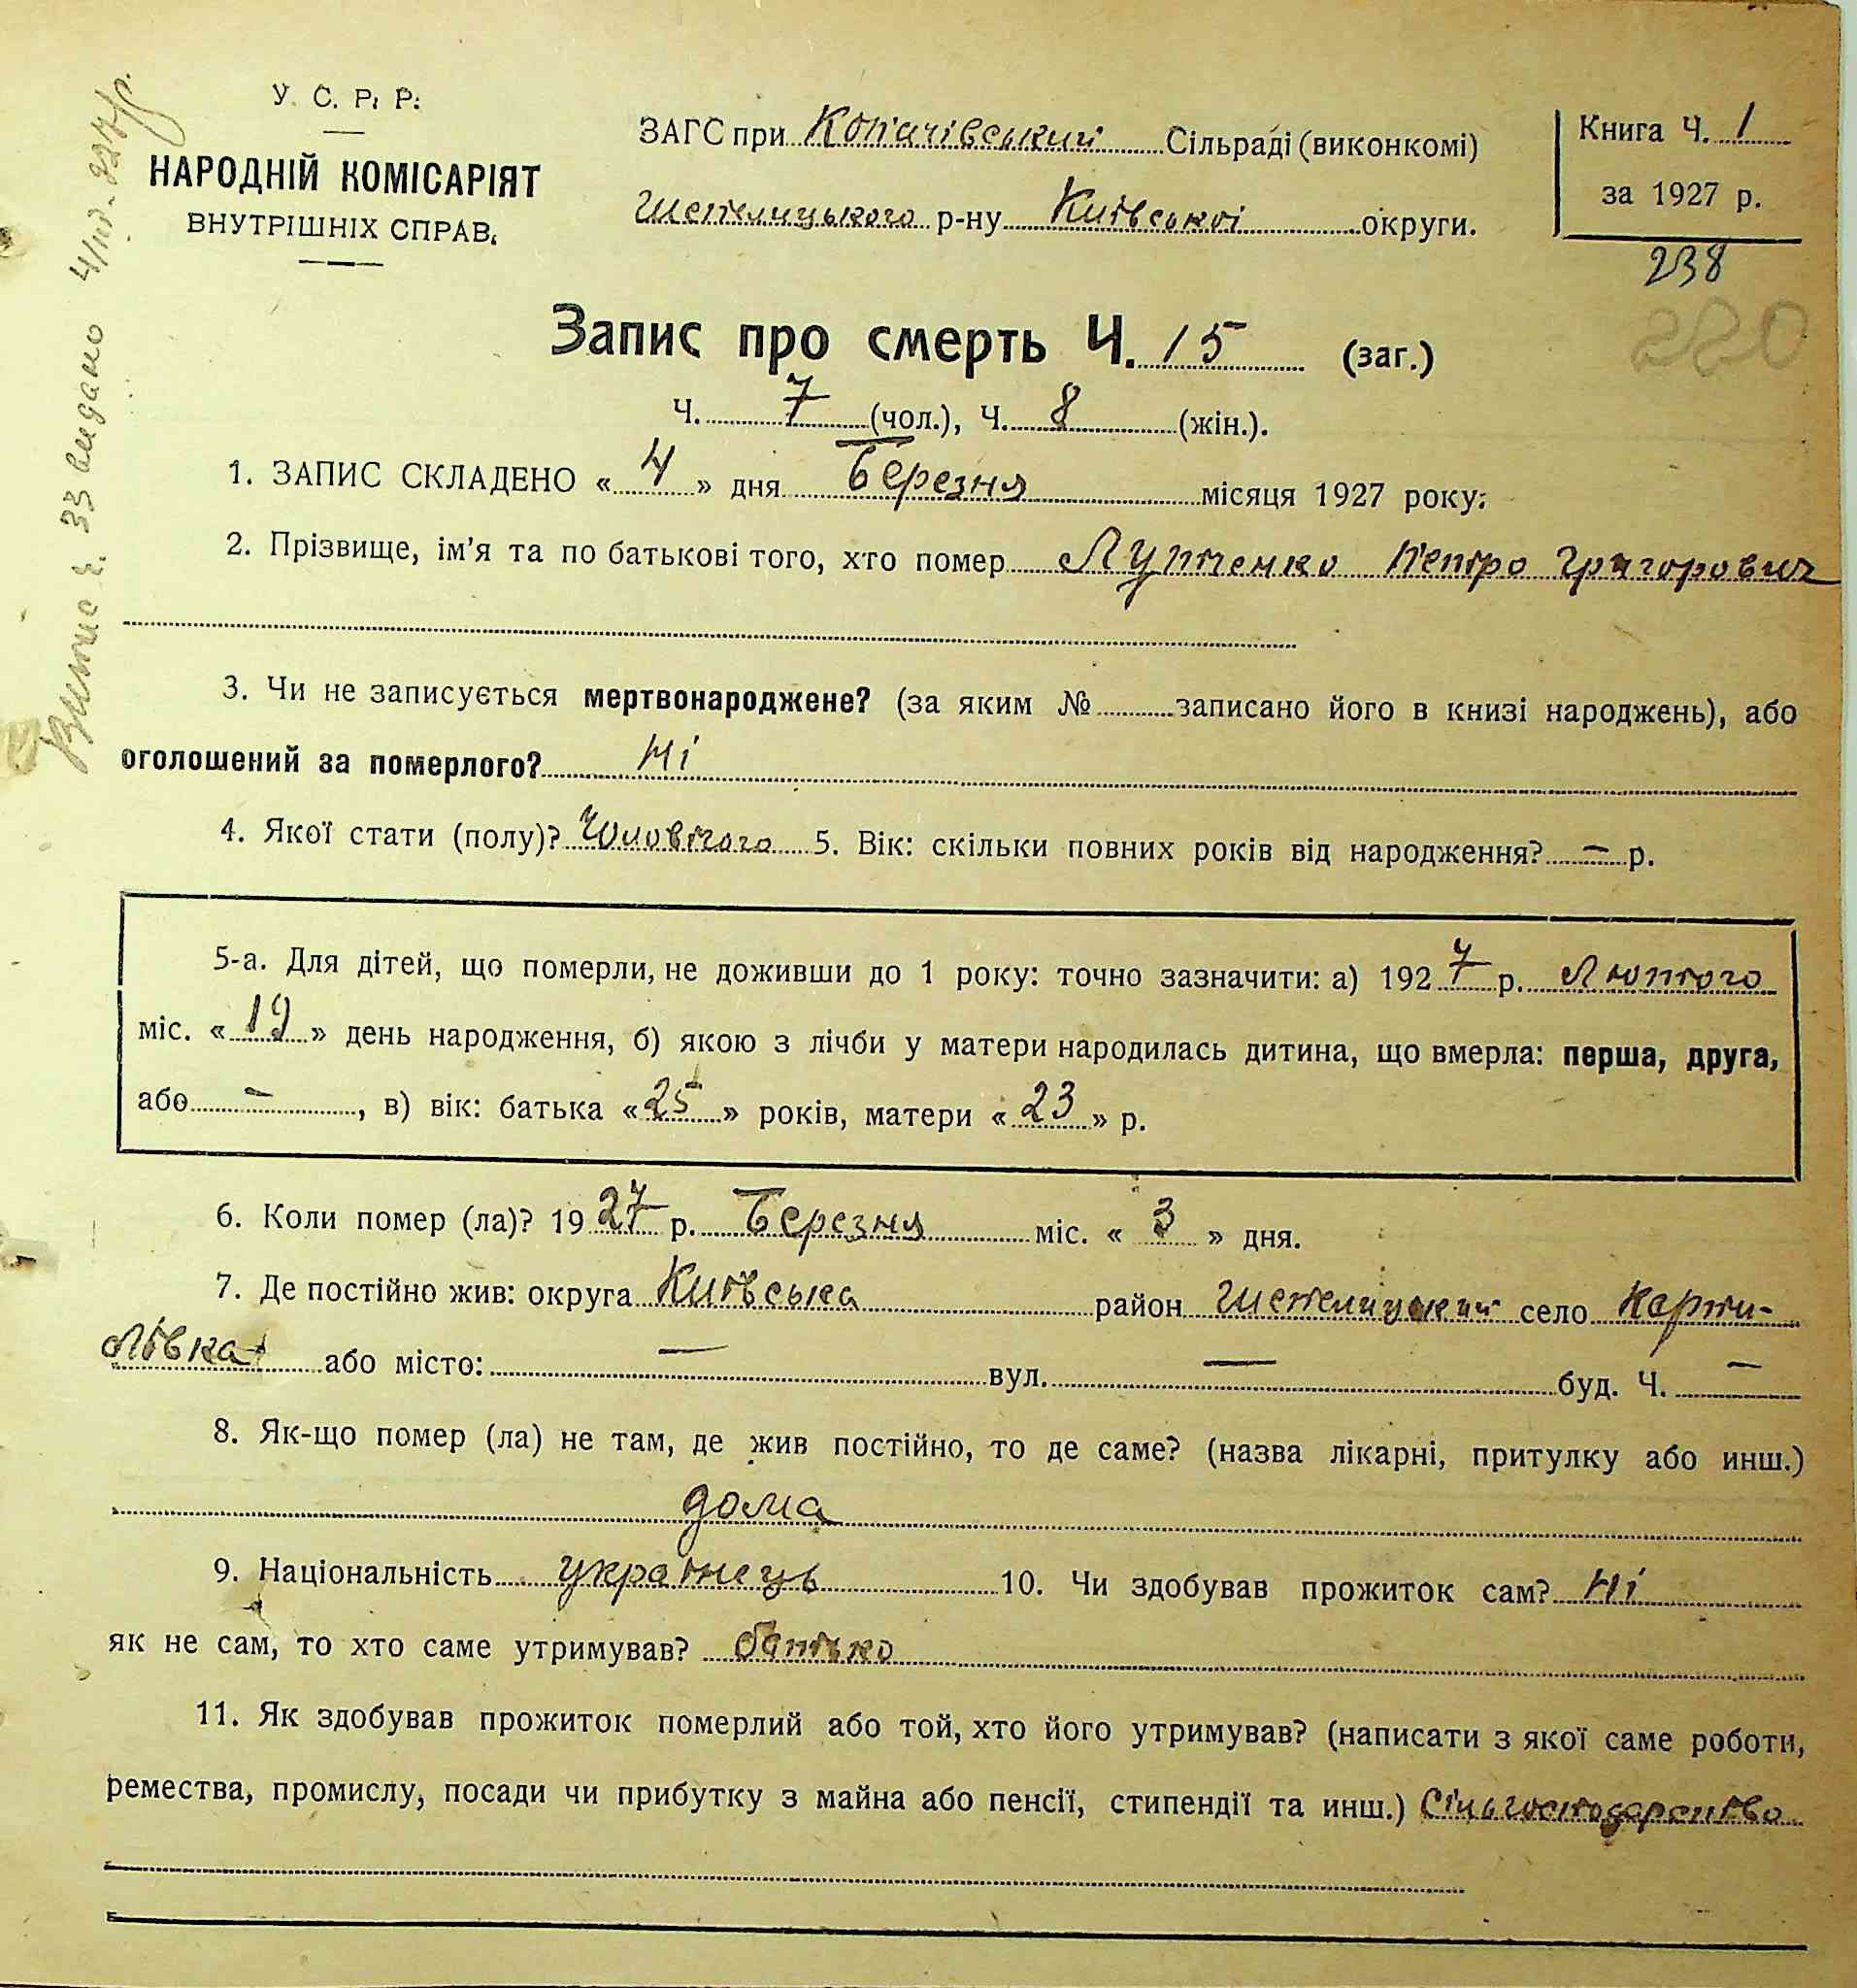 У. С. Р. Р.
НАРОДНІЙ КОМІСАРІЯТ
ВНУТРІШНІХ СПРАВ.
ЗАГС при Копачівський Сільраді (виконкомі)
р-ну Київської округи.
Книга Ч. 1
за 1927 р.
238
220
Витяг ч. 33 видано
Запис про смерть Ч. 15 (заг.)
Ч. 7 (чол.), Ч. 8 (жін.).
1. ЗАПИС СКЛАДЕНО « 4 » дня Березня місяця 1927 року.
2. Прізвище, ім'я та по батькові того, хто помер Петро Григорович
3. Чи не записується мертвонароджене? (за яким № записано його в книзі народжень), або
оголошений за померлого? Ні
4. Якої стати (полу)? Чоловічого 5. Вік: скільки повних років від народження? – р.
5-а. Для дітей, що померли, не доживши до 1 року: точно зазначити: а) 1927 р. Лютого
міс. « 19 » день народження, б) якою з лічби у матери народилась дитина, що вмерла: перша, друга,
або – , в) вік: батька « 25 » років, матери « 23 » р.
6. Коли помер (ла)? 1927 р. Березня міс. « 3 » дня.
7. Де постійно жив: округа Київська район село Карпи-
лівка або місто: — вул. — буд. Ч. —
8. Як-що помер (ла) не там, де жив постійно, то де саме? (назва лікарні, притулку або инш.)
дома
9. Національність українець 10. Чи здобував прожиток сам? Ні
як не сам, то хто саме утримував? батько
11. Як здобував прожиток померлий або той, хто його утримував? (написати з якої саме роботи,
ремества, промислу, посади чи прибутку з майна або пенсії, стипендії та инш.) Сільгосподарство